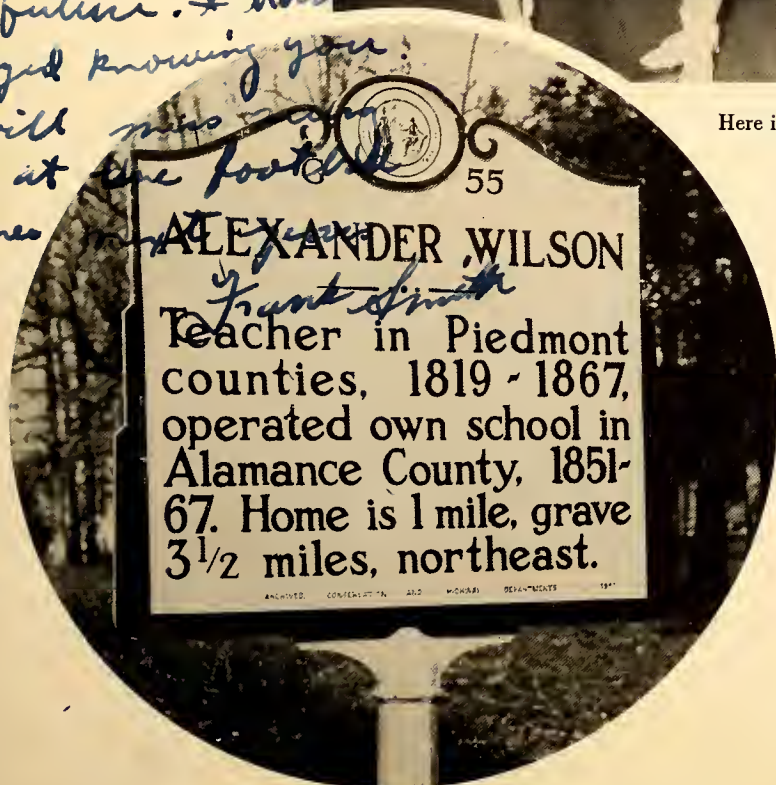 future. I
knowing you.
will miss
at the football
next year
Frank Smith
Here i
55
ALEXANDER WILSON
Teacher in Piedmont
counties, 1819-1867,
operated own school in
Alamance County, 1851-
67. Home is 1 mile, grave
3 1/2 miles, northeast.
ARCHIVES, CONSERVATION AND HIGHWAY DEPARTMENTS